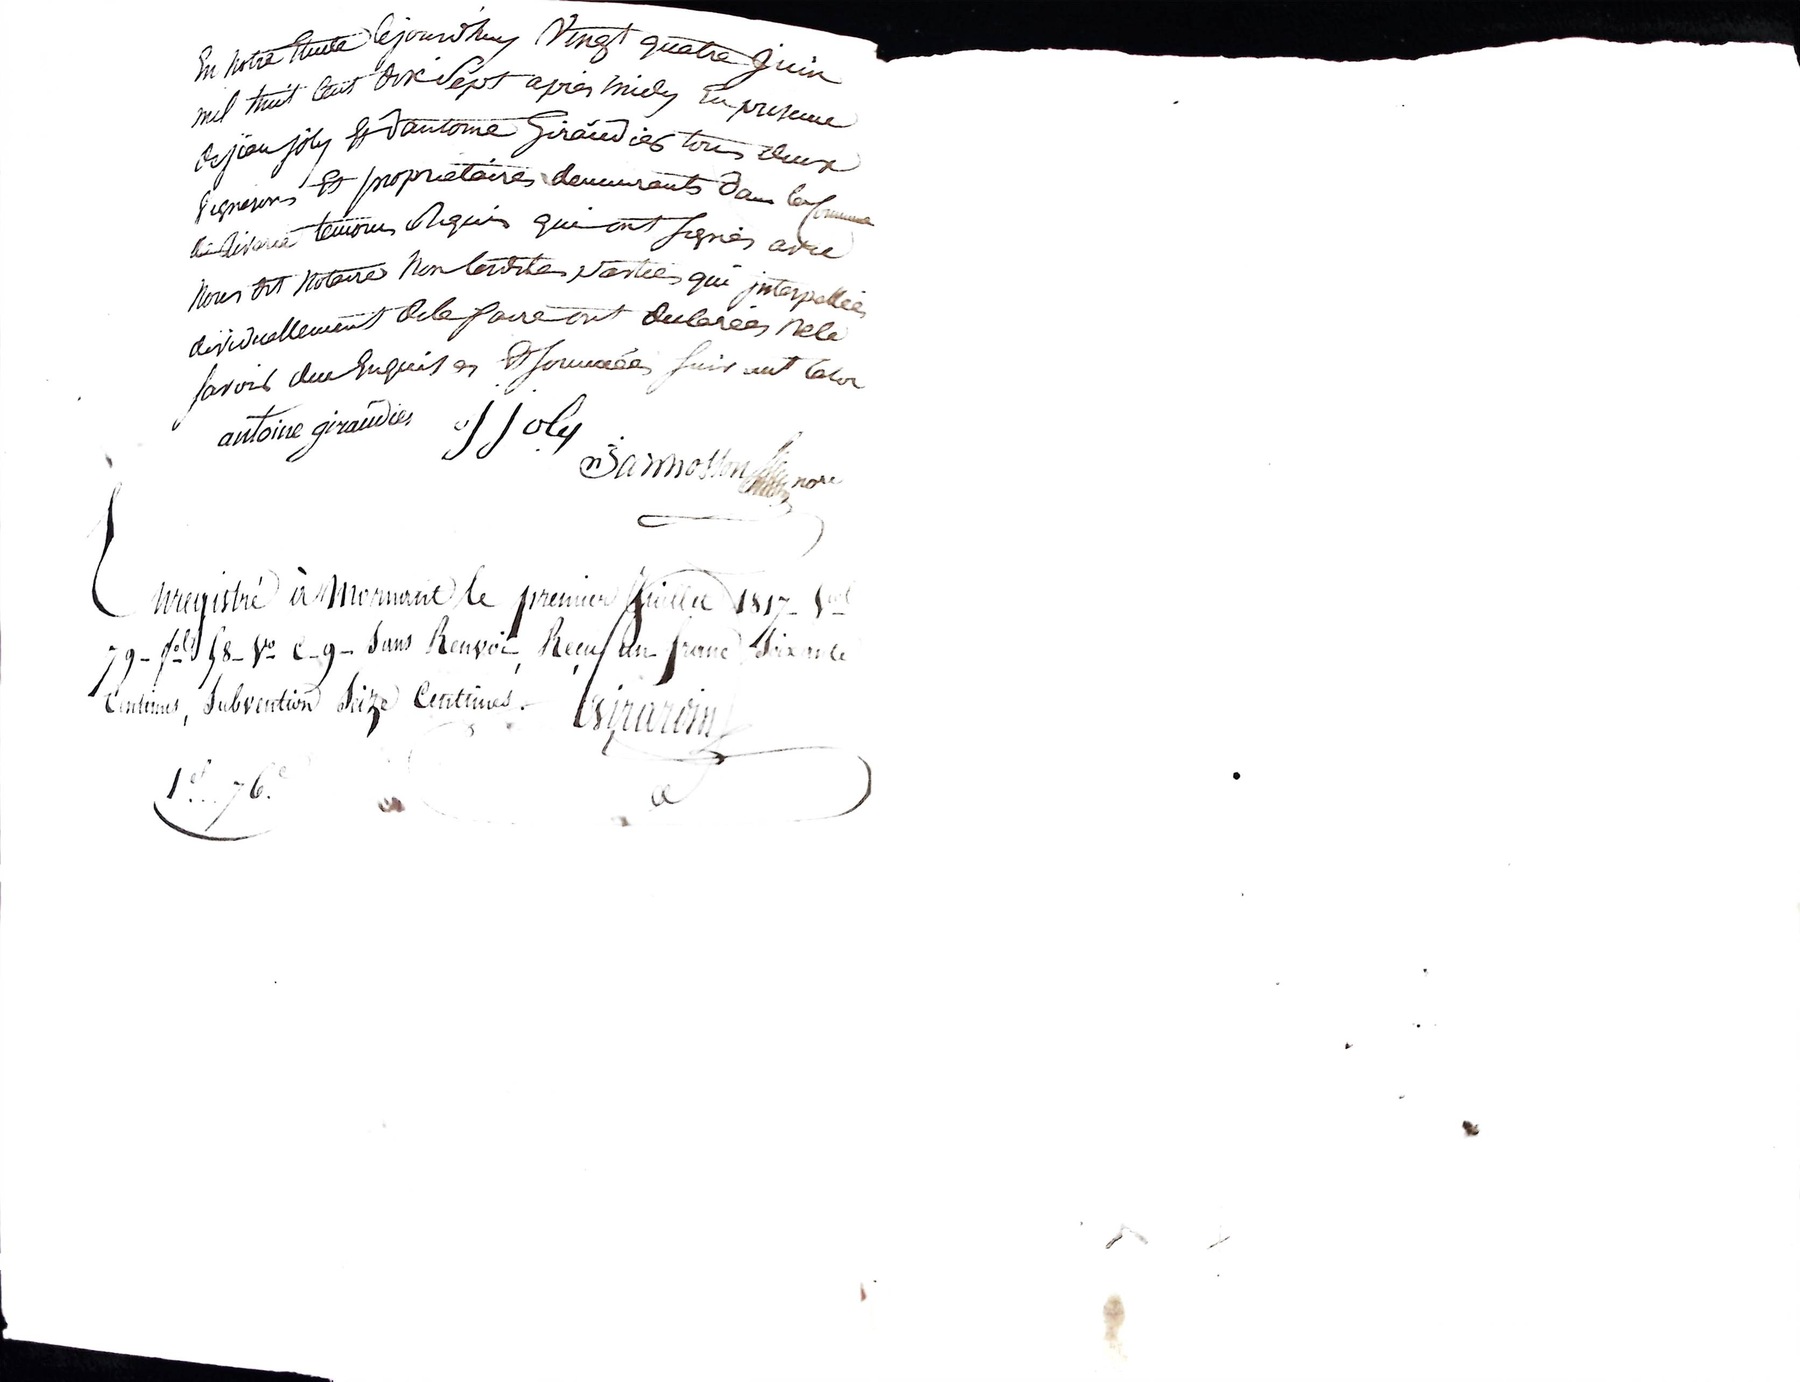 En notre Etude Cejourd'huy Vingt quatre Juin
mil huit Cent dix Sept après midy En presence
de jean joly Et d'antoine Giraudier tous deux
Vignerons Et propriétaires demeurants dans la Commune
de Riverie temoins Requis qui ont signés avec
Nous dit Notaire Non lesdites parties qui interpellées
dividuellement de le faire ont declarées Ne le
savoir due Enquises Et sommées suivant la loi
antoine giraudier J Joly
Jannosson nore
Enregistré à Mornant le premier juillet 1817 - Vol
79 - fol. 58 - Vo C. 9 - Sans Renvoi, Reçu un franc Soixante
Centimes, Subvention Seize Centimes. Girardin
1f. 76c